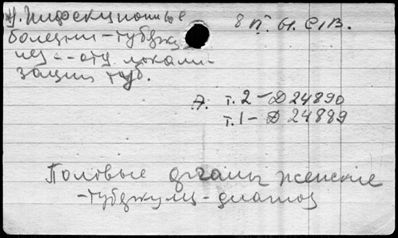 У. Инфекционные
болезни - туберку
лез - отд. локали-
зации туб.
8 п. н. С.В.
А. т. 2 - D 24890
т. 1 - D 24889
Половые органы женские
- туберкулез - диагноз